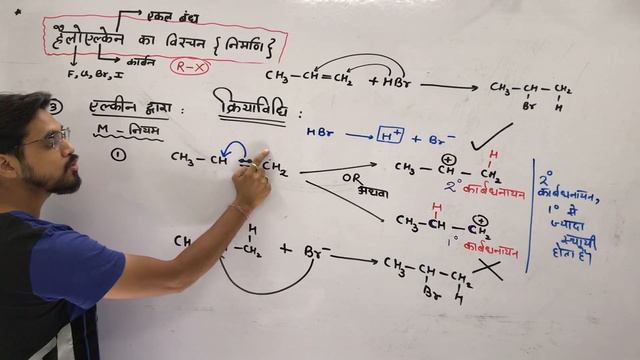 * एकल बंध
हैलोएल्केन का विरचन {निर्माण}
F, Cl, Br, I कार्बन R-X
CH₃-CH=CH₂ + HBr → CH₃-CH-CH₂
Br H
③ एल्कीन द्वारा : क्रियाविधि :
M-नियम
HBr → H⁺ + Br⁻
① CH₃-CH=CH₂
H
CH₃-CH-CH₂
⊕
2° कार्बधनायन
OR
अथवा
H
CH₃-CH-CH₂
⊕
1° कार्बधनायन
2°
कार्बधनायन,
1° से
ज्यादा
स्थायी
होता है।
H
CH₂ + Br⁻ → CH₃-CH-CH₂
Br H